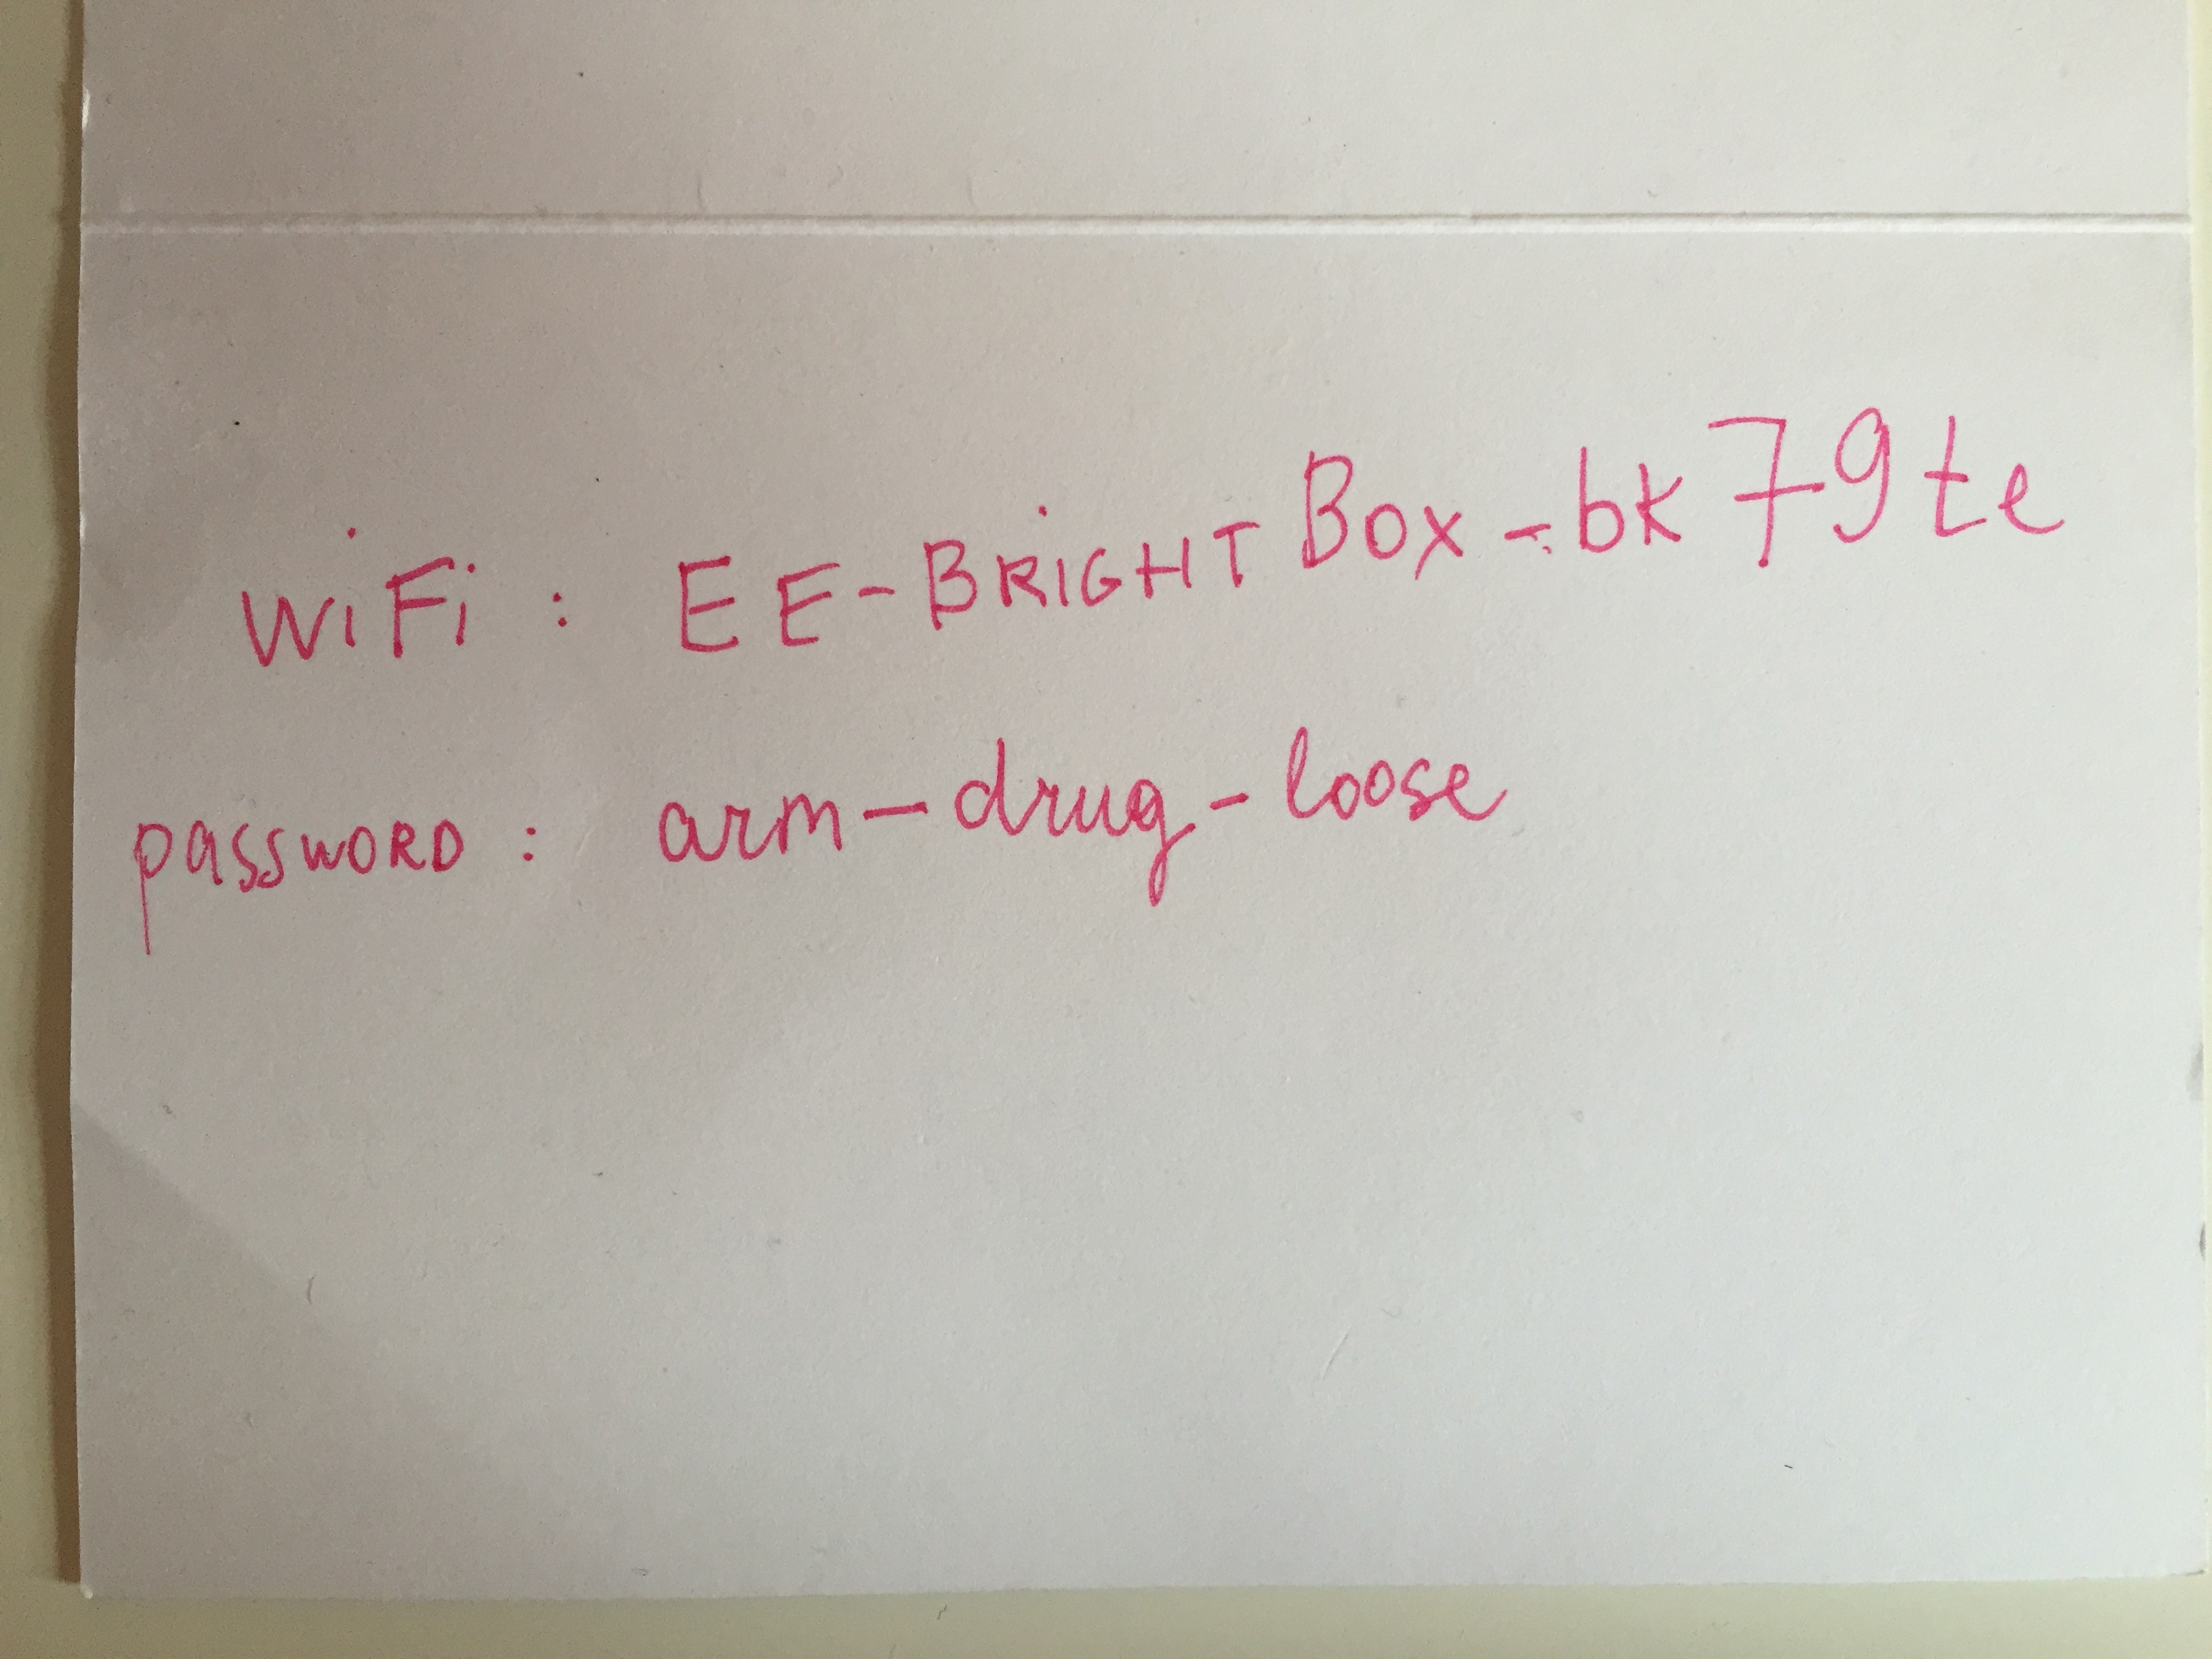 WiFi : EE-BRIGHTBOX-bk79te
password : arm-drug-loose